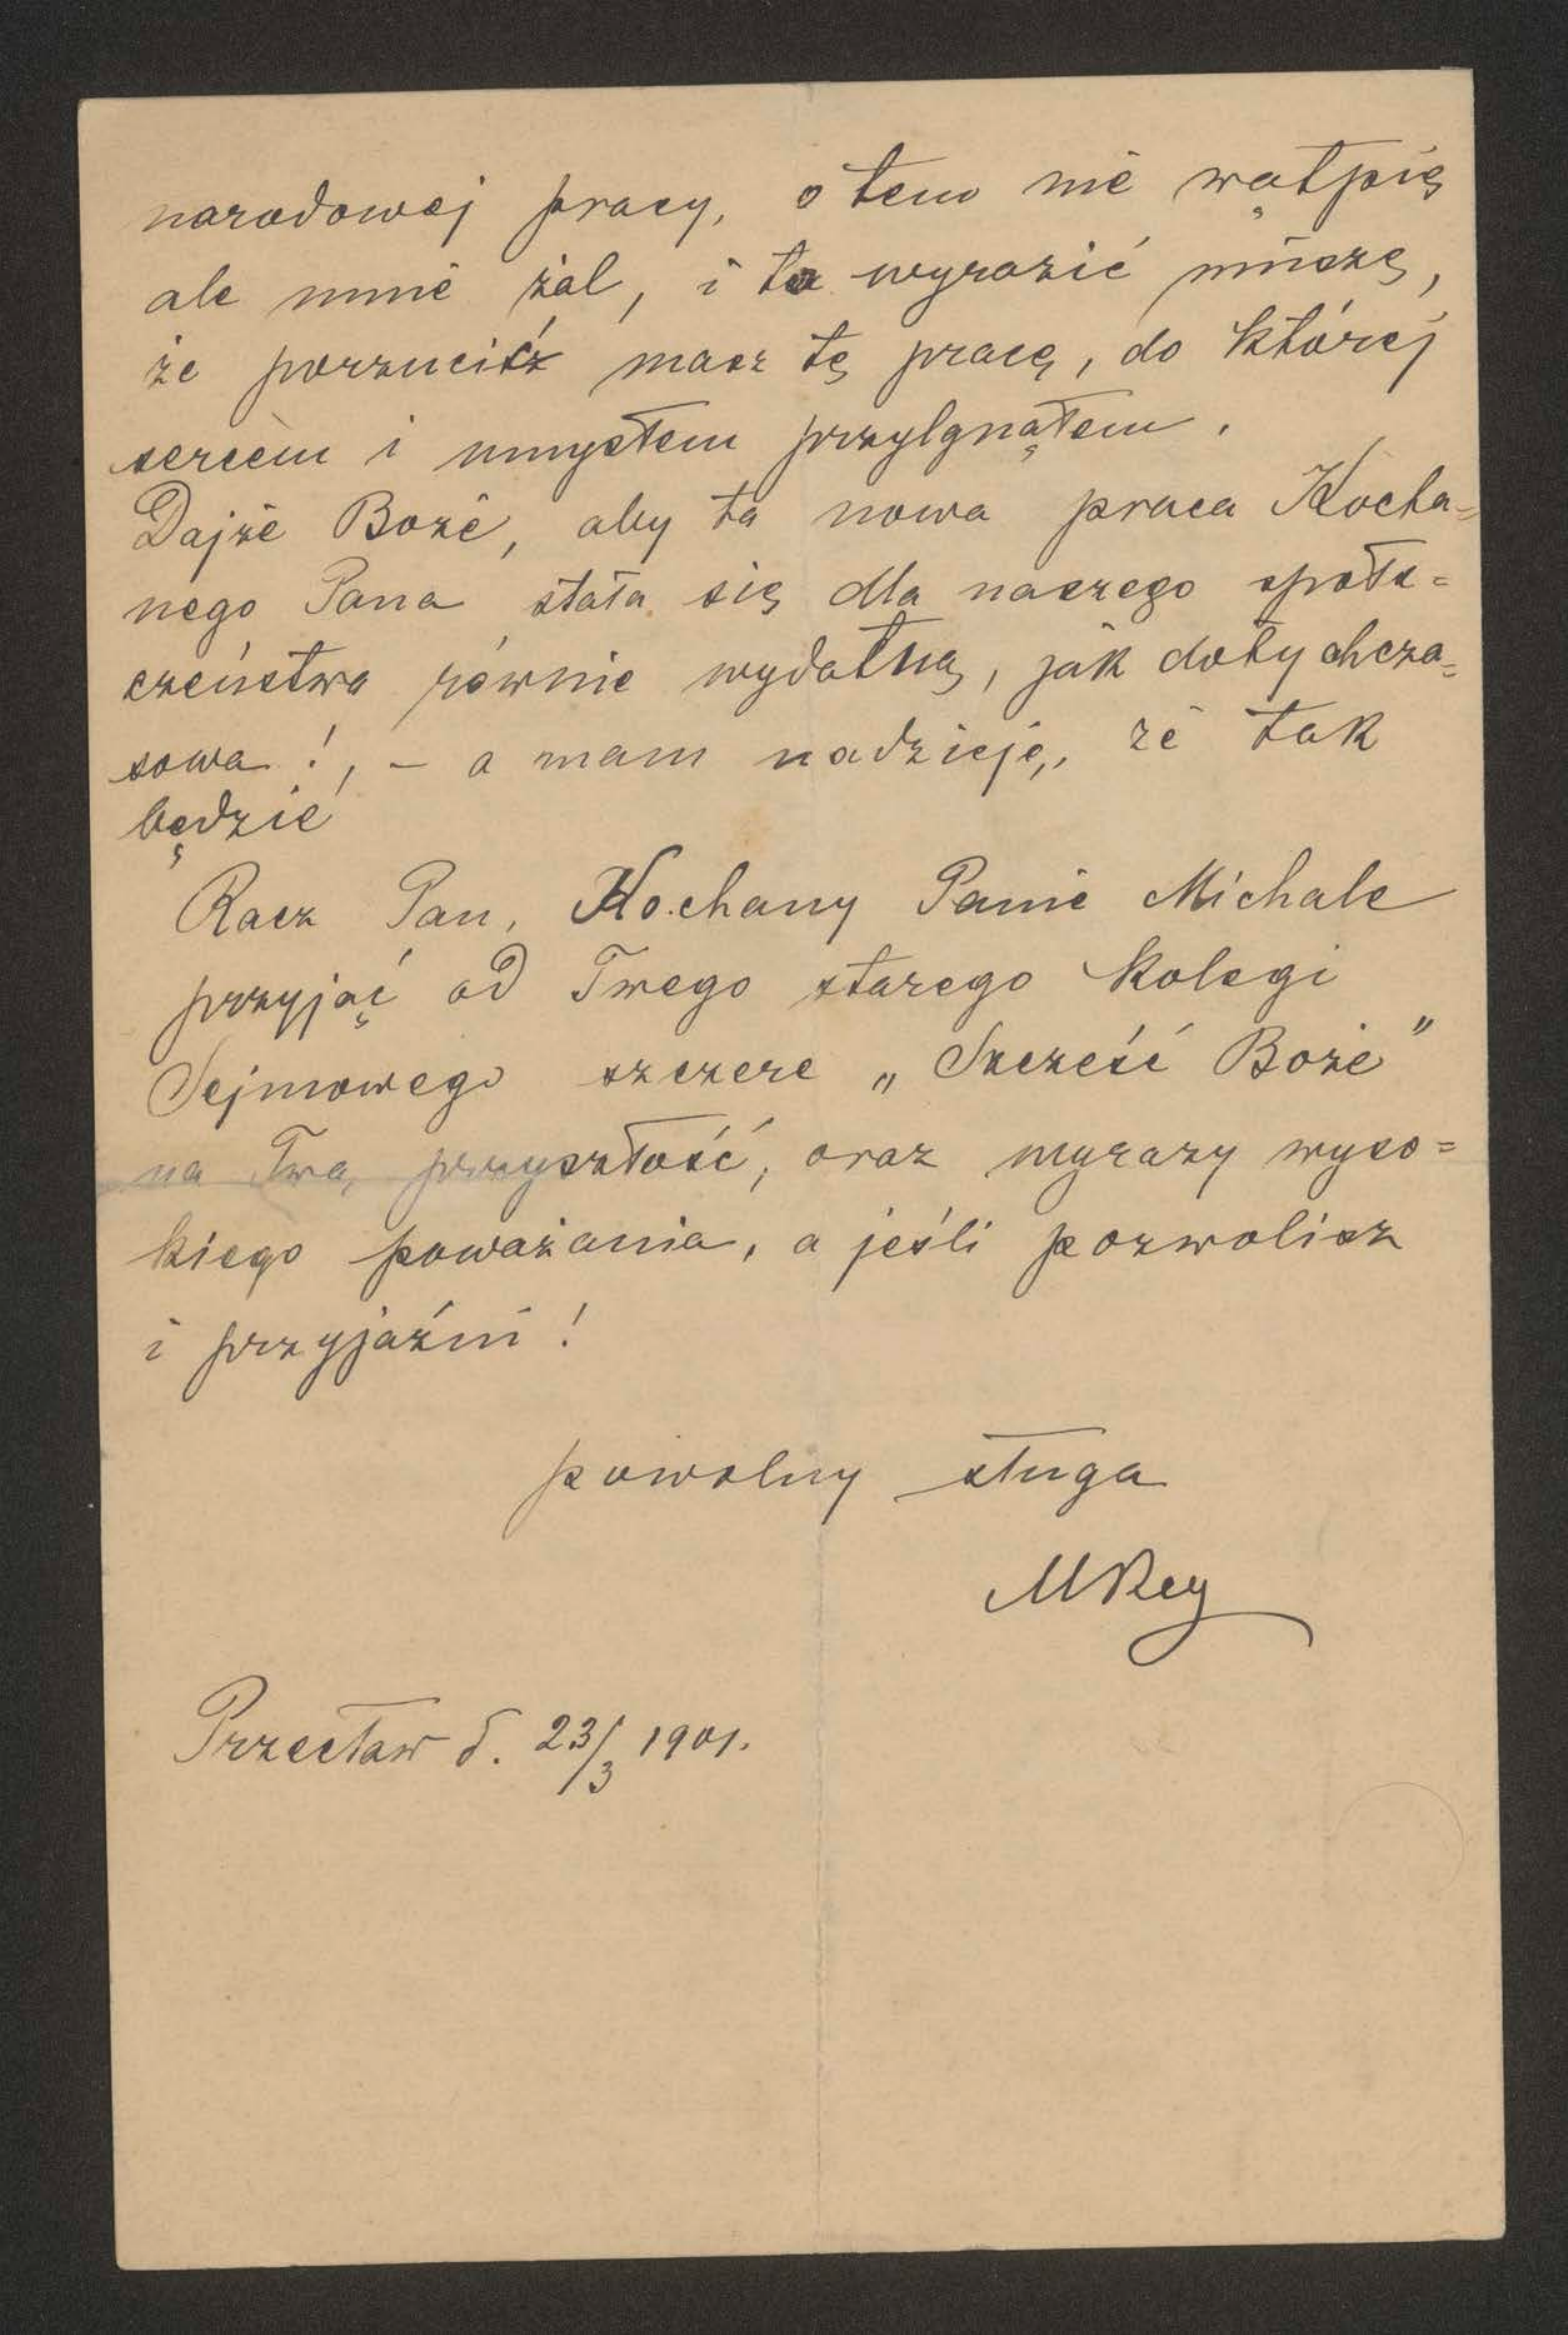 narodowej pracy, o tem nie wątpię
ale mnie żal, i to wyrazić muszę,
że porzucić masz tę pracę, do której
sercem i umysłem przylgnąłem.
Dajże Boże, aby ta nowa praca Kocha=
nego Pana stała się dla naszego społe=
czeństwa równie wydatną, jak dotychcza=
sowa!, – a mam nadzieję, że tak
będzie
Racz Pan, Kochany Panie Michale
przyjąć od Twego starego Kolegi
Sejmowego szczere „Szczęść Boże”
na Twą przyszłość, oraz wyrazy wyso=
kiego poważania, a jeśli pozwolisz
i przyjaźni!
powolny sługa
MRey
Przecław d. 23/3 1901.